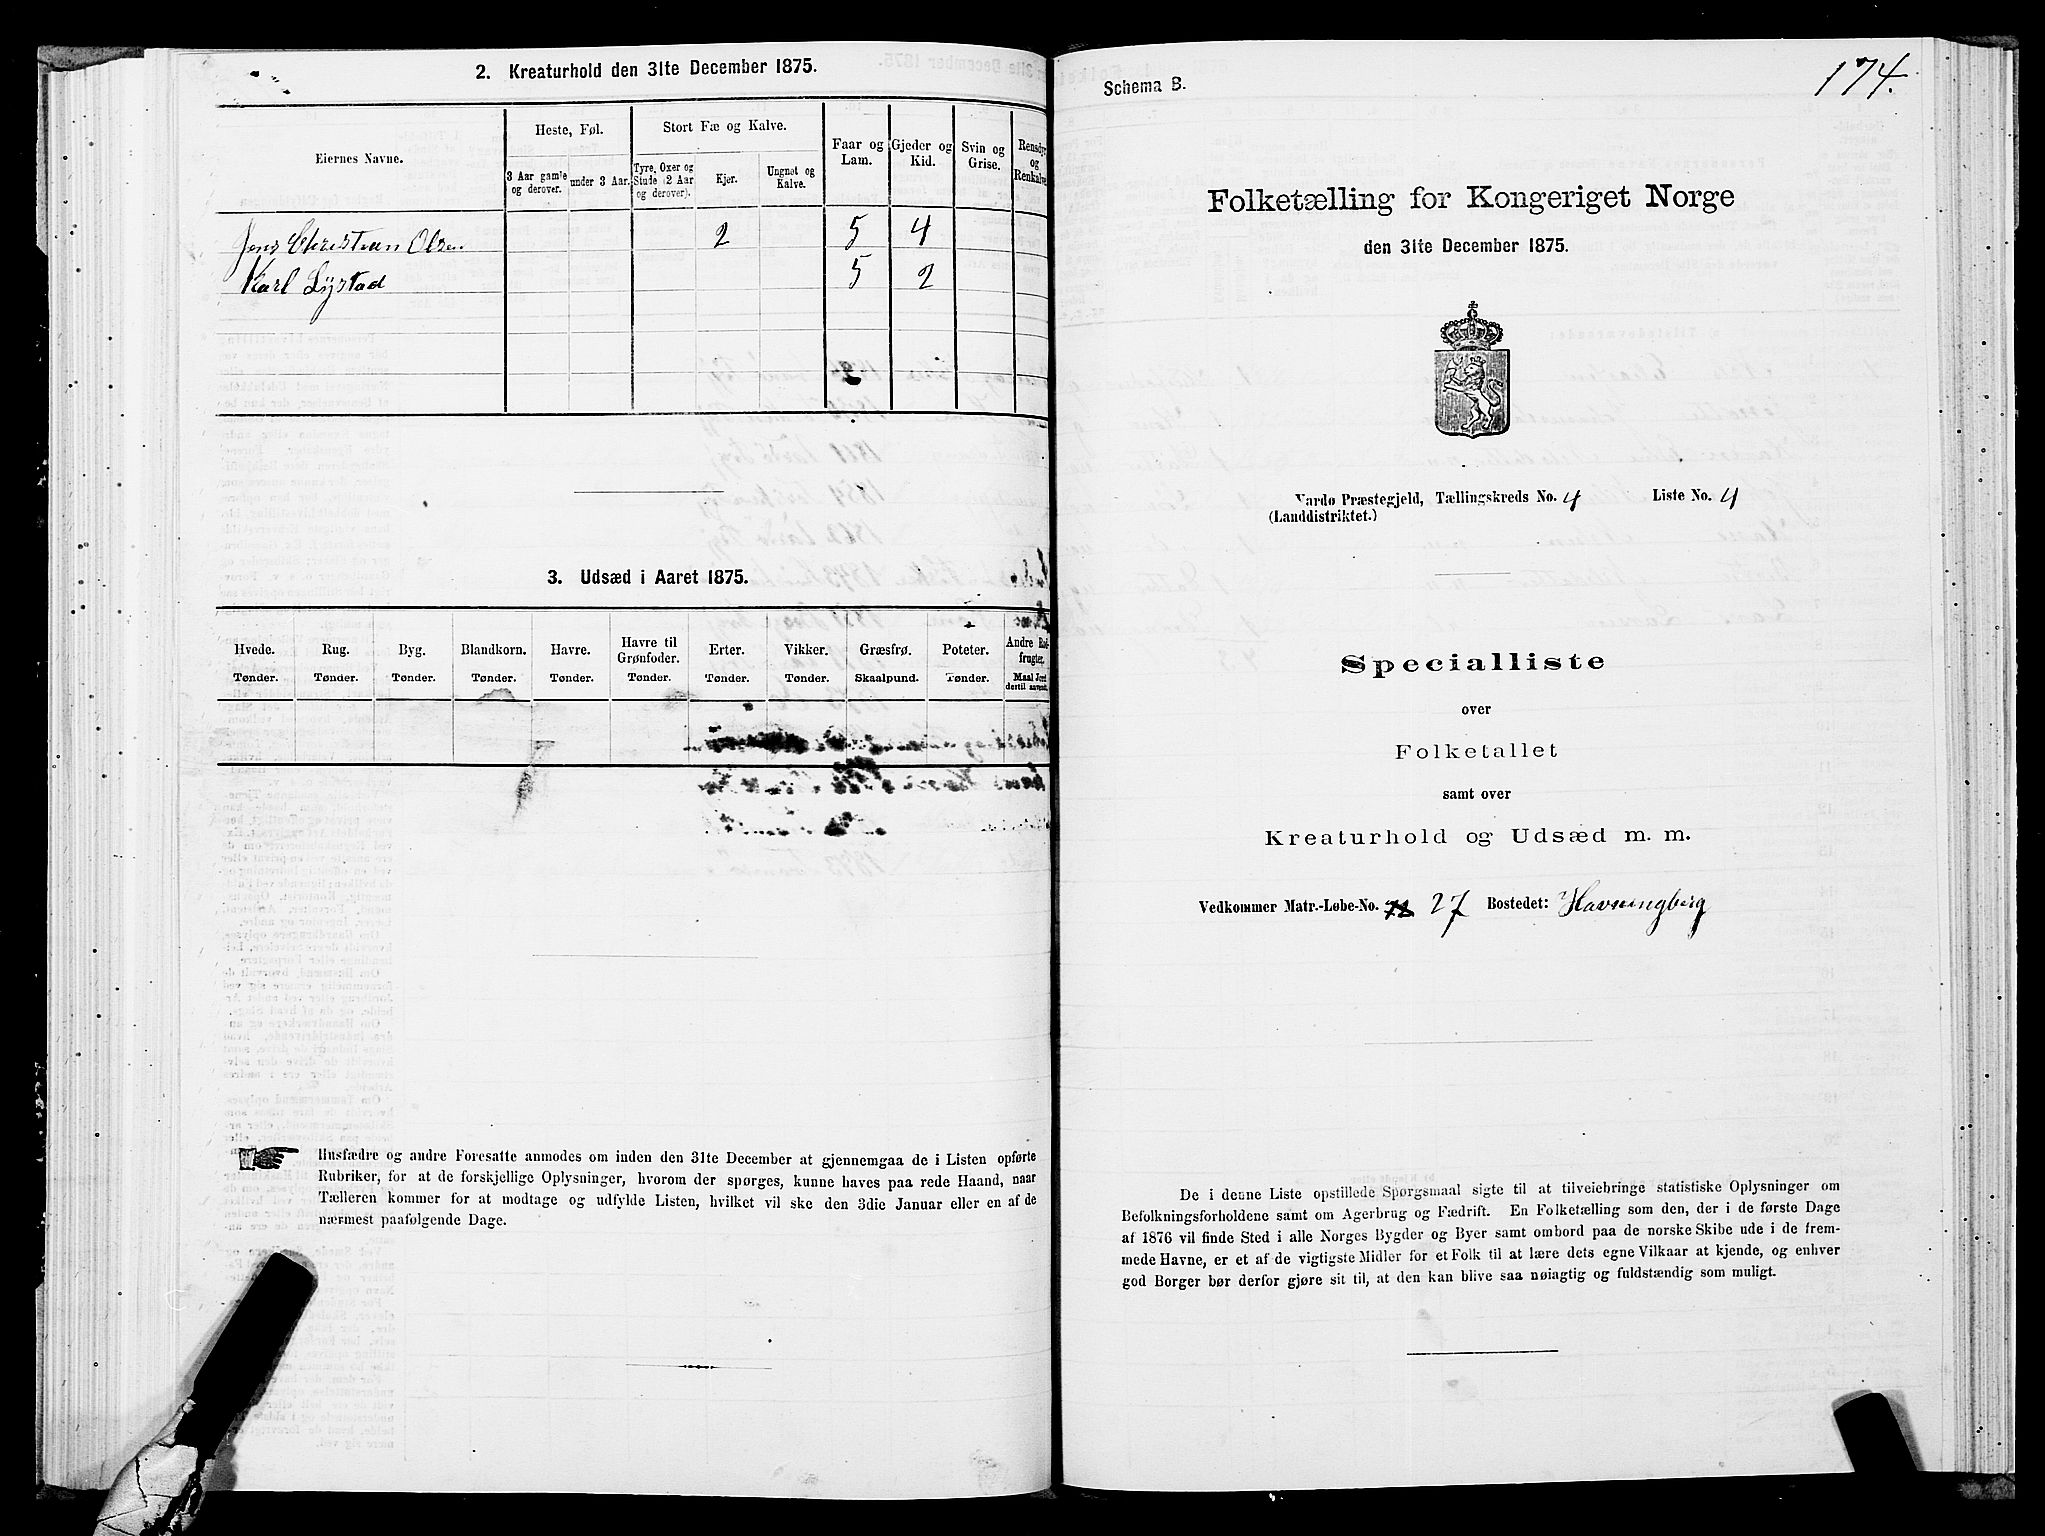 2. Kreaturhold den 31te December 1875.
Eiernes Navne.
Heste, Føl.
3 Aar gamle og derover.
under 3 Aar.
Stort Fæ og Kalve.
Tyre, Oxer og Stude (2 Aar og derover).
Kjer.
Ungnøt og Kalve.
Faar og Lam.
Gjeder og Kid.
Svin og Grise.
Rensdyr og Renkalve
Jens Christian Olsen 2 5 4
Karl Lystad 5 2
3. Udsæd i Aaret 1875.
Hvede. Tønder.
Rug. Tønder.
Byg. Tønder.
Blandkorn. Tønder.
Havre. Tønder.
Havre til Grønfoder. Tønder.
Erter. Tønder.
Vikker. Tønder.
Græsfrø. Skaalpund.
Poteter. Tønder.
Andre Rodfrugter. Maal Jord dertil anvendt.
Husfædre og andre Foresatte anmodes om inden den 31te December at gjennemgaa de i Listen opførte
Rubriker, for at de forskjellige Oplysninger, hvorom der spørges, kunne haves paa rede Haand, naar
Tælleren kommer for at modtage og udfylde Listen, hvilket vil ske den 3die Januar eller en af de
nærmest paafølgende Dage.
174.
Schema B.
Folketælling for Kongeriget Norge
den 31te December 1875.
Vardø Præstegjeld, Tællingskreds No. 4 Liste No. 4
(Landdistriktet.)
Specialliste
over
Folketallet
samt over
Kreaturhold og Udsæd m. m.
Vedkommer Matr.-Løbe-No. 27 Bostedet: Havningberg
De i denne Liste opstillede Spørgsmaal sigte til at tilveiebringe statistiske Oplysninger om
Befolkningsforholdene samt om Agerbrug og Fædrift. En Folketælling som den, der i de første Dage
af 1876 vil finde Sted i alle Norges Bygder og Byer samt ombord paa de norske Skibe ude i de frem-
mede Havne, er et af de vigtigste Midler for et Folk til at lære dets egne Vilkaar at kjende, og enhver
god Borger bør derfor gjøre sit til, at den kan blive saa nøiagtig og fuldstændig som muligt.